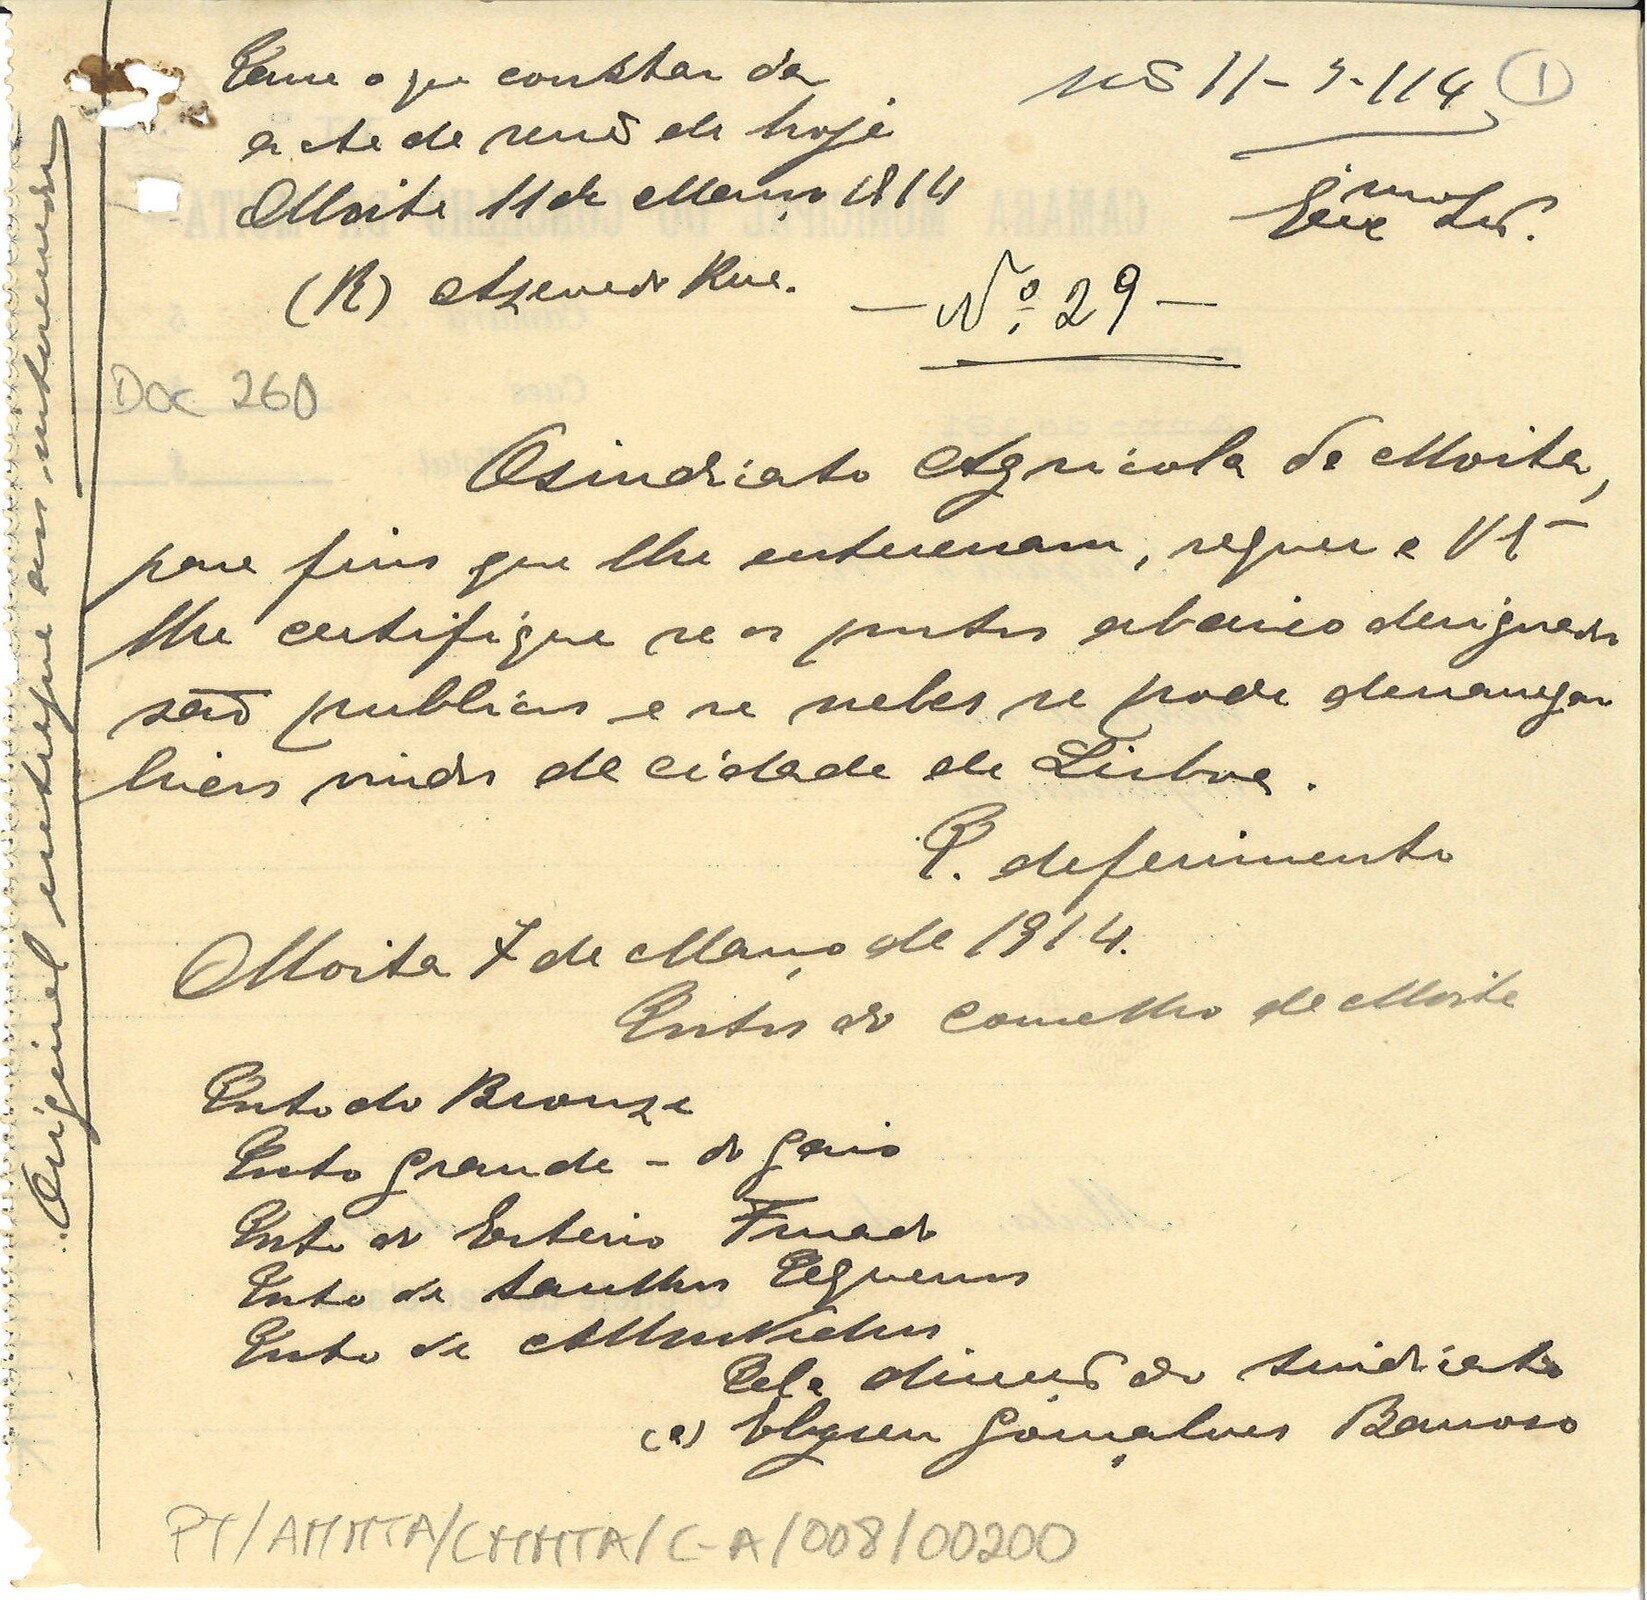 Tome o que constar da
acta de sessão de hoje
Moita 11 de Março 1914
(R) Azevedo Rua.
11-3-114
1
Exmo Snr.
— Nº 29 —
Doc 260
O sindicato Agricola da Moita,
para fins que lhe enteressam, requer a VEx
lhe certifique se os portos abaixo designados
são publicos e se neles se pode descarregar
vindos da cidade de Lisboa.
P. deferimento
Moita 7 de Março de 1914.
Portos do concelho da Moita
Porto do Bronze
Porto grande - do gaio
Porto do Esteiro Furado
Porto de Sarilhos Pequenos
Porto de Alhos Vedros
Pela direcção do sindicato
(a) Elyseu Gonçalves Barroso
Original entregue aos interessados
PT/AMMTA/CMMTA/C-A/008/00200
CAMARA MUNICIPAL DO CONCELHO DA MOITA